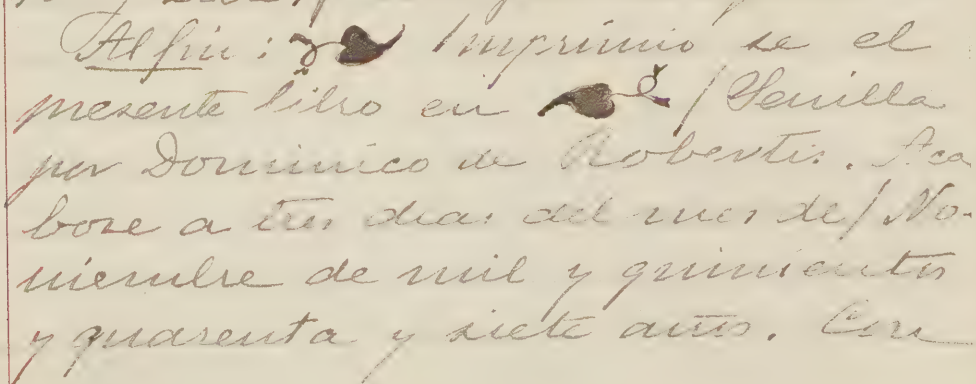 Al fin: Imprimio se el
presente libro en / Seuilla
por Dominico de Robertis. Aca
bose a tres dias del mes de / No-
uiembre de mil y quinientos
y quarenta y siete años. Con